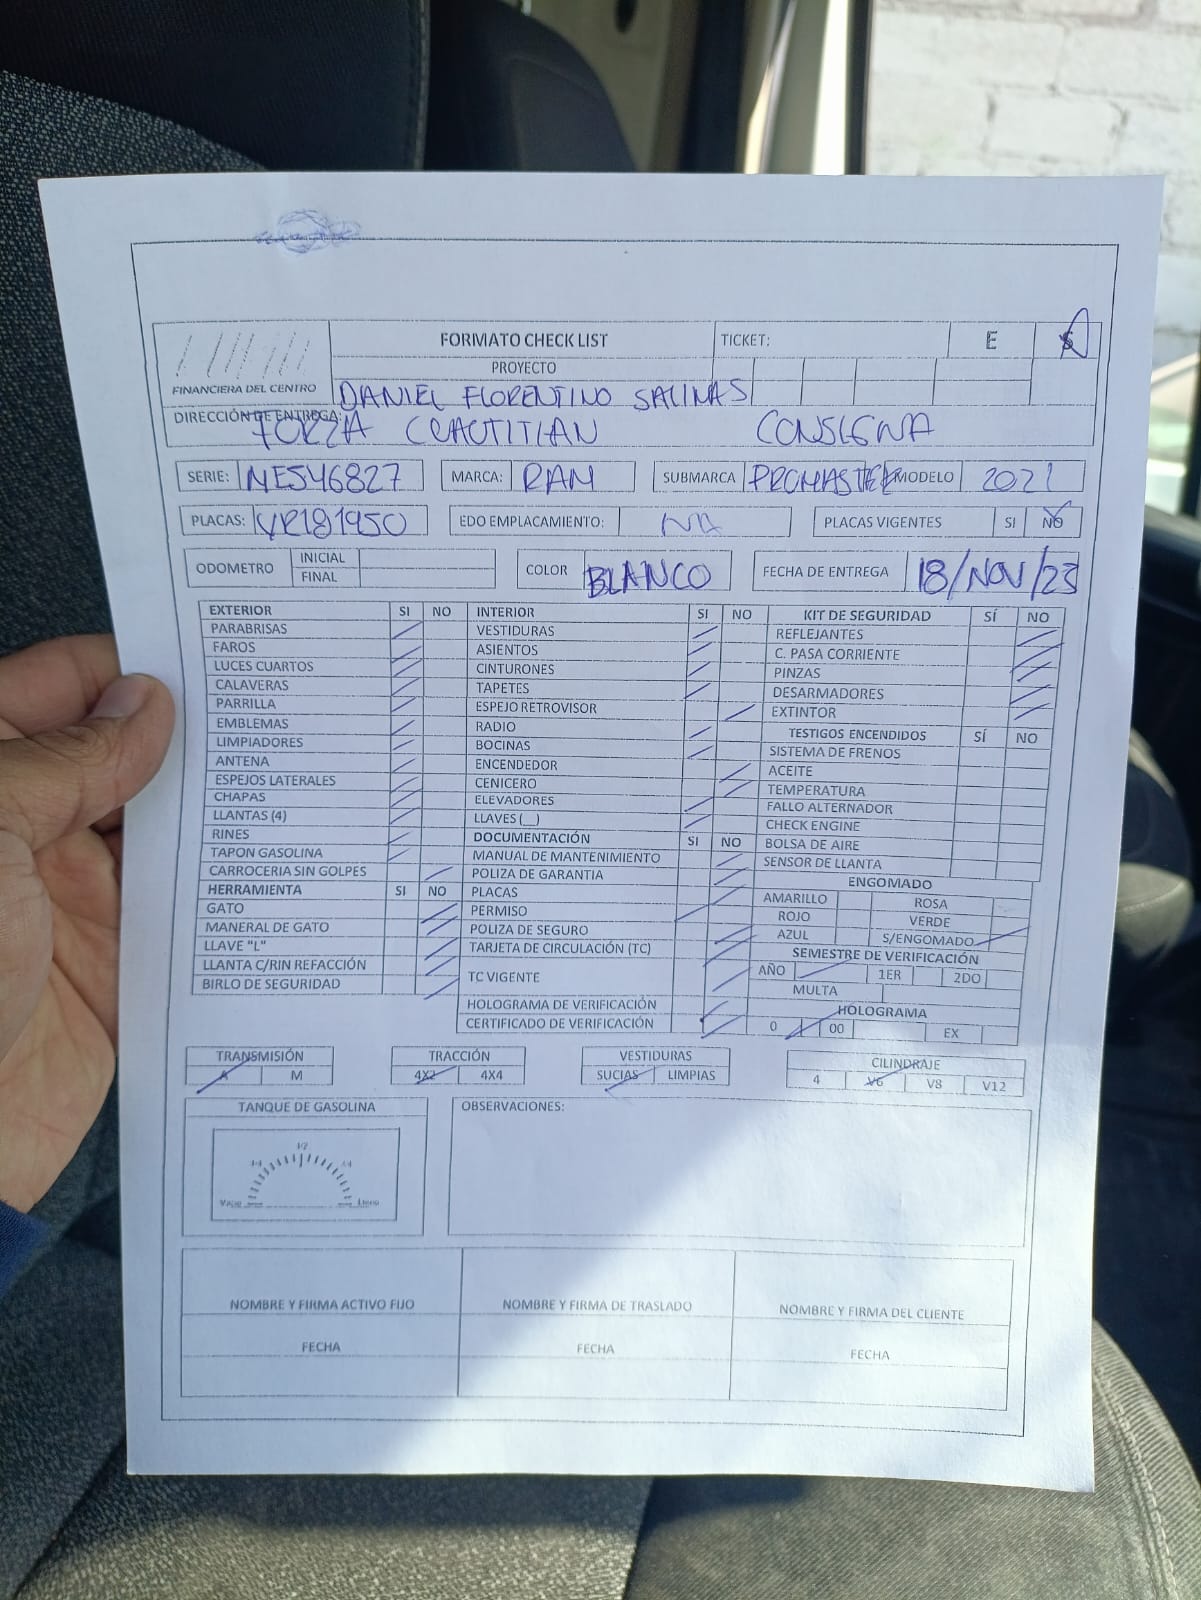 FORMATO CHECK LIST
TICKET:
E
S
PROYECTO
FINANCIERA DEL CENTRO
DANIEL FLORENTINO SALINAS
DIRECCIÓN DE ENTREGA:
FORZA CUAUTITLAN CONSIGNA
SERIE: NE546827 MARCA: RAM SUBMARCA PROMASTER MODELO 2021
PLACAS: VR181950 EDO EMPLACAMIENTO: NA PLACAS VIGENTES SI NO
ODOMETRO INICIAL FINAL COLOR BLANCO FECHA DE ENTREGA 18/NOV/23
EXTERIOR SI NO
PARABRISAS
FAROS
LUCES CUARTOS
CALAVERAS
PARRILLA
EMBLEMAS
LIMPIADORES
ANTENA
ESPEJOS LATERALES
CHAPAS
LLANTAS (4)
RINES
TAPON GASOLINA
CARROCERIA SIN GOLPES
HERRAMIENTA SI NO
GATO
MANERAL DE GATO
LLAVE "L"
LLANTA C/RIN REFACCIÓN
BIRLO DE SEGURIDAD
INTERIOR SI NO
VESTIDURAS
ASIENTOS
CINTURONES
TAPETES
ESPEJO RETROVISOR
RADIO
BOCINAS
ENCENDEDOR
CENICERO
ELEVADORES
LLAVES (__)
DOCUMENTACIÓN SI NO
MANUAL DE MANTENIMIENTO
POLIZA DE GARANTIA
PLACAS
PERMISO
POLIZA DE SEGURO
TARJETA DE CIRCULACIÓN (TC)
TC VIGENTE
HOLOGRAMA DE VERIFICACIÓN
CERTIFICADO DE VERIFICACIÓN
KIT DE SEGURIDAD SÍ NO
REFLEJANTES
C. PASA CORRIENTE
PINZAS
DESARMADORES
EXTINTOR
TESTIGOS ENCENDIDOS SÍ NO
SISTEMA DE FRENOS
ACEITE
TEMPERATURA
FALLO ALTERNADOR
CHECK ENGINE
BOLSA DE AIRE
SENSOR DE LLANTA
ENGOMADO
AMARILLO ROSA
ROJO VERDE
AZUL S/ENGOMADO
SEMESTRE DE VERIFICACIÓN
AÑO 1ER 2DO
MULTA
HOLOGRAMA
0 00 EX
TRANSMISIÓN
A M
TRACCIÓN
4X2 4X4
VESTIDURAS
SUCIAS LIMPIAS
CILINDRAJE
4 V6 V8 V12
TANQUE DE GASOLINA
1/2
OBSERVACIONES:
NOMBRE Y FIRMA ACTIVO FIJO NOMBRE Y FIRMA DE TRASLADO NOMBRE Y FIRMA DEL CLIENTE
FECHA FECHA FECHA